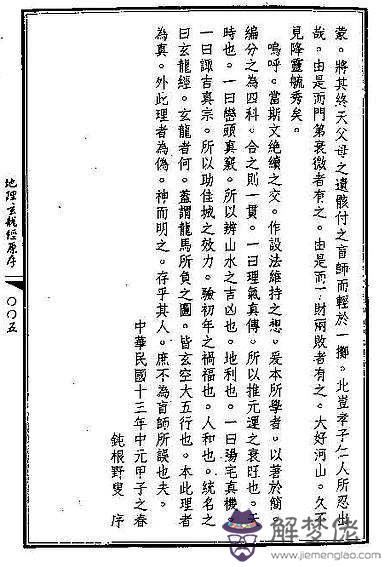 蒙。將其終天父母之遺骸付之盲師而輕於一擲。此豈孝子仁人所忍出
哉。由是而門第衰微者有之。由是而一財兩敗者有之。大好河山。久不
見降靈毓秀矣。
嗚呼。當斯文絶續之交。作設法維持之想。爰本所學者。以著於簡
編分之為四科。合之則一貫。一曰理氣真傳。所以推元運之衰旺也。
時也。一曰巒頭真竅。所以辨山水之吉凶也。地利也。一曰陽宅真機
一曰諏吉真宗。所以助佳城之效力。驗初年之禍福也。人和也。統名之
曰玄龍經。玄龍者何。蓋謂龍馬所負之圖。皆玄空大五行也。本此理者
為真。外此理者為偽。神而明之。存乎其人。庶不為盲師所誤也夫。
中華民國十三年中元甲子之春
鈍根野叟 序
地理玄龍經原序
〇〇五
解梦佬
www.jiemenglao.com